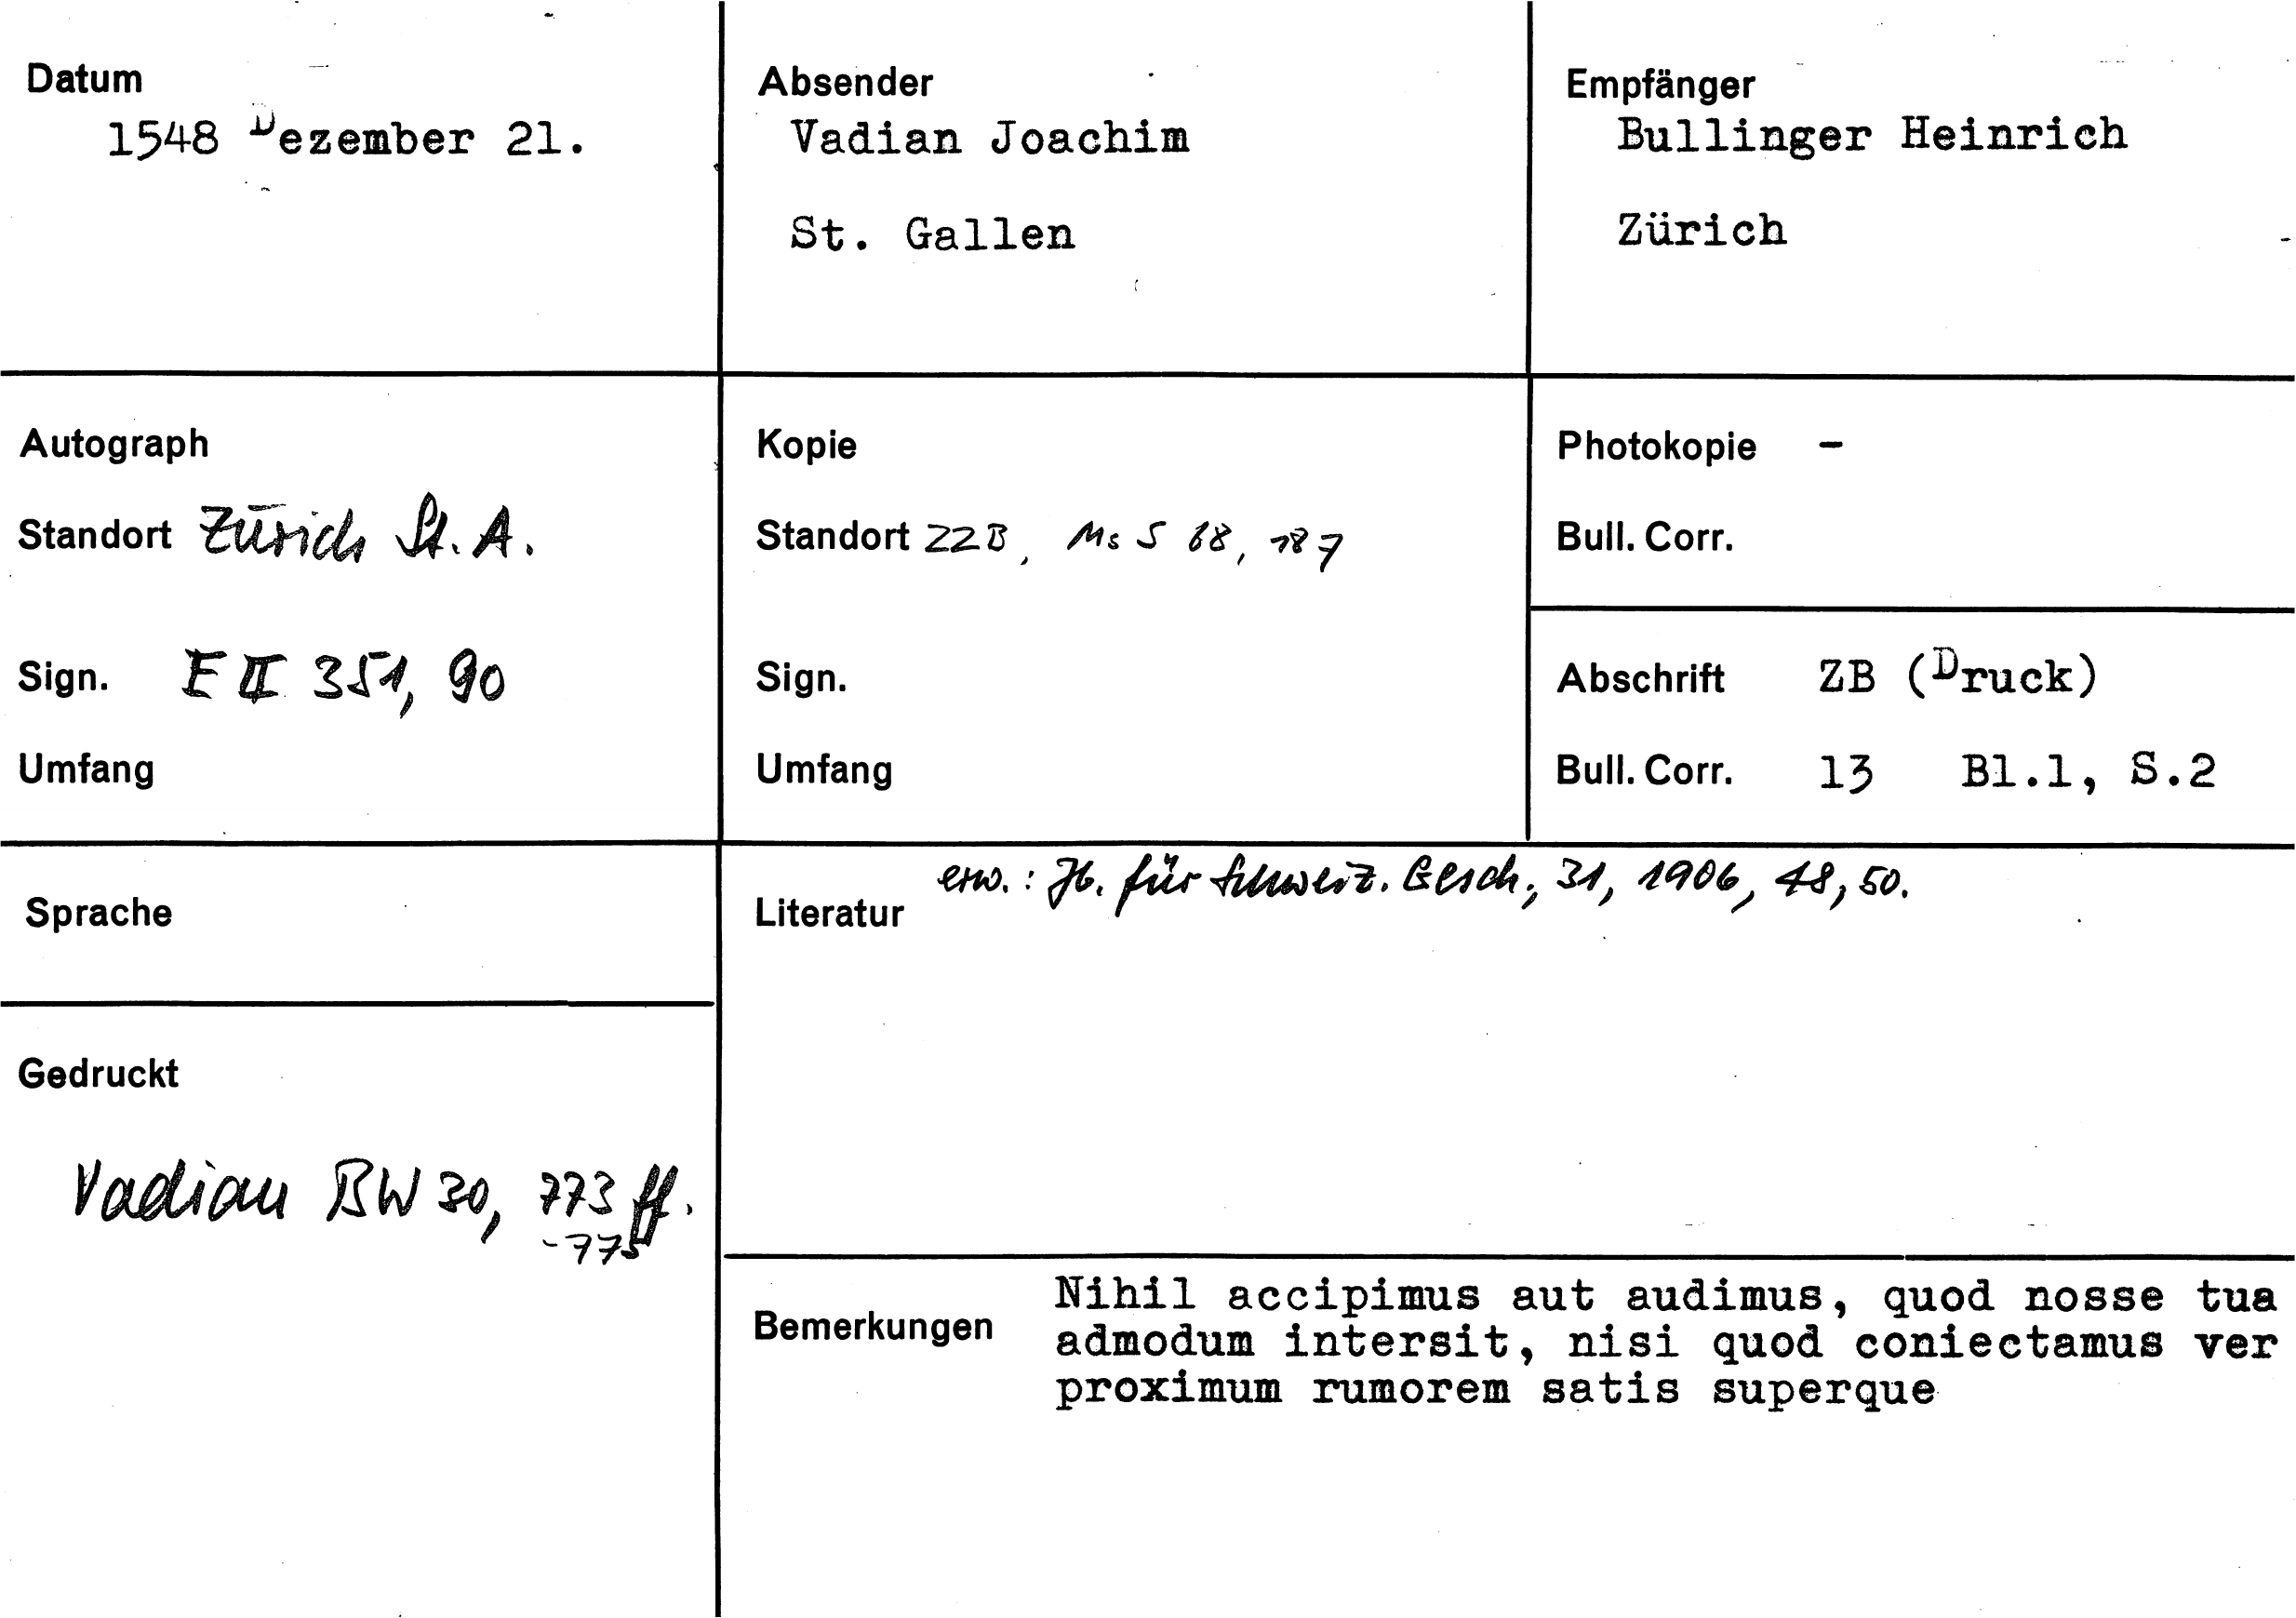 Datum
1548 Dezember 21.
Absender
Vadian Joachim
St. Gallen
Empfänger
Bullinger Heinrich
Zürich
Autograph
Standort Zürich St. A.
Sign. E II 351, 90
Umfang
Kopie
Standort ZZB, Ms S 68, 187
Sign.
Umfang
Photokopie -
Bull. Corr.
Abschrift ZB (Druck)
Bull. Corr. 13 Bl.1, S.2
Sprache
Literatur erw.: Jb. für Schweiz. Gesch., 31, 1906, 48, 50.
Gedruckt
Vadian BW 30, 773 ff.
-775
Bemerkungen
Nihil accipimus aut audimus, quod nosse tua
admodum intersit, nisi quod coniectamus ver
proximum rumorem satis superque